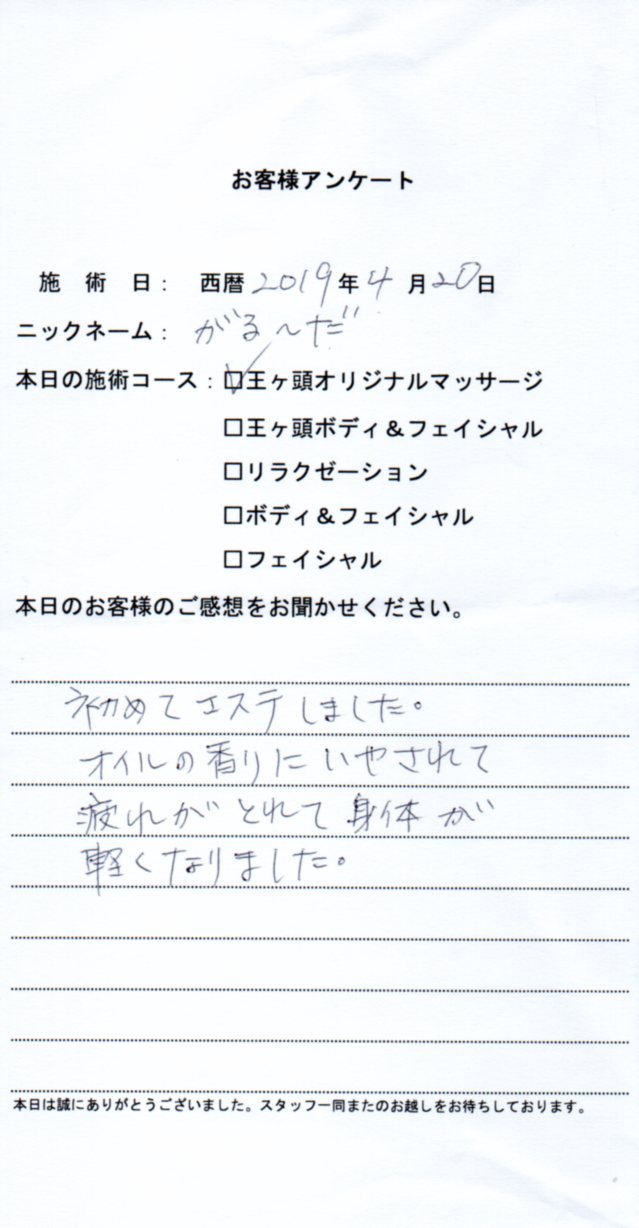 お客様アンケート
施術日： 西暦2019年4月20日
ニックネーム： がる〜だ
本日の施術コース：☑王ヶ頭オリジナルマッサージ
□王ヶ頭ボディ＆フェイシャル
□リラクゼーション
□ボディ＆フェイシャル
□フェイシャル
本日のお客様のご感想をお聞かせください。
初めてエステしました。
オイルの香りにいやされて
疲れがとれて身体が
軽くなりました。
本日は誠にありがとうございました。スタッフ一同またのお越しをお待ちしております。